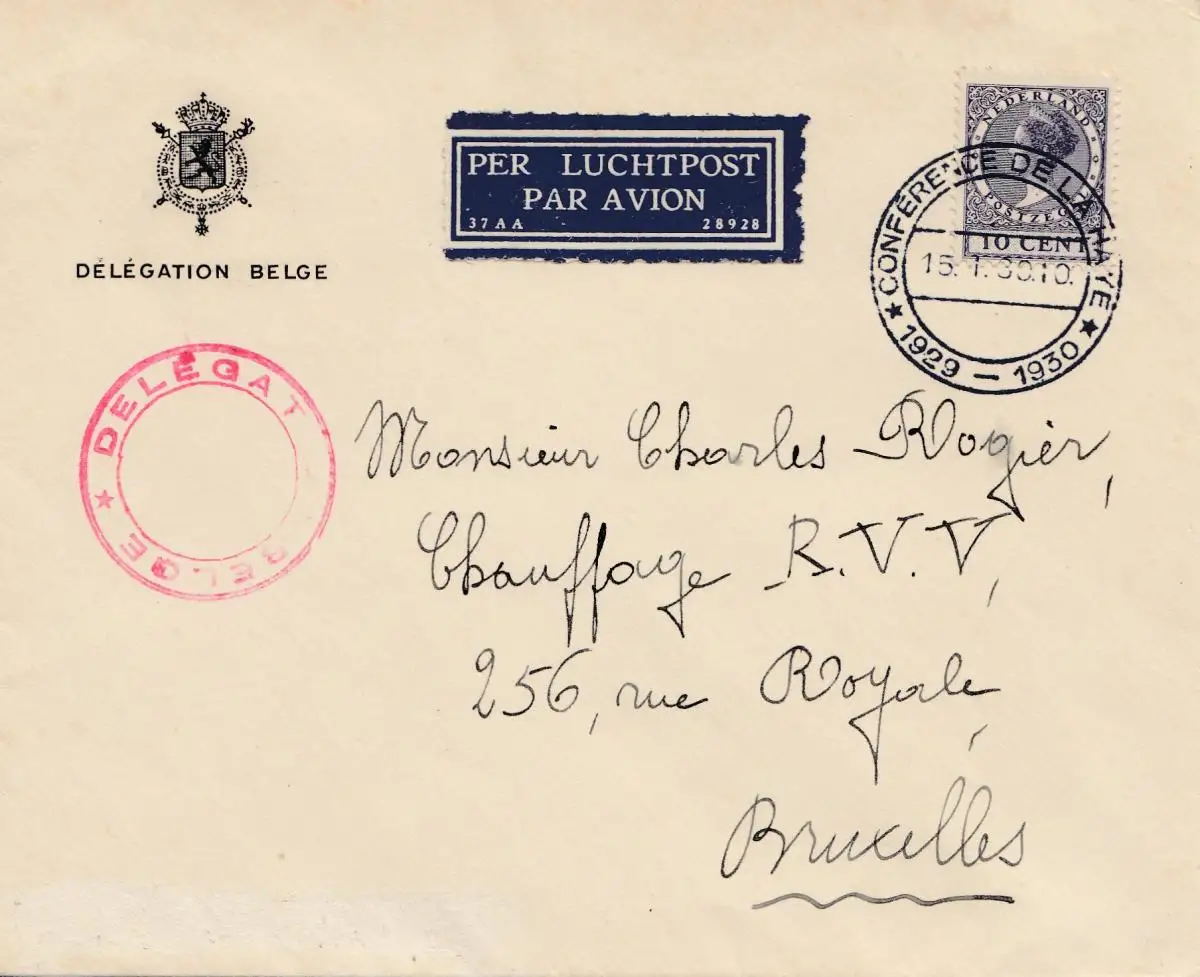 DÉLÉGATION BELGE
PER LUCHTPOST
PAR AVION
37AA 28928
NEDERLAND
POSTZEG
10 CENT
CONFÉRENCE DE LA HAYE
15.1.30.10.
★ 1929 — 1930 ★
DELÉGAT
★ BELGE
Monsieur Charles Rogier,
Chauffage R.V.V,
256, rue Royale,
Bruxelles